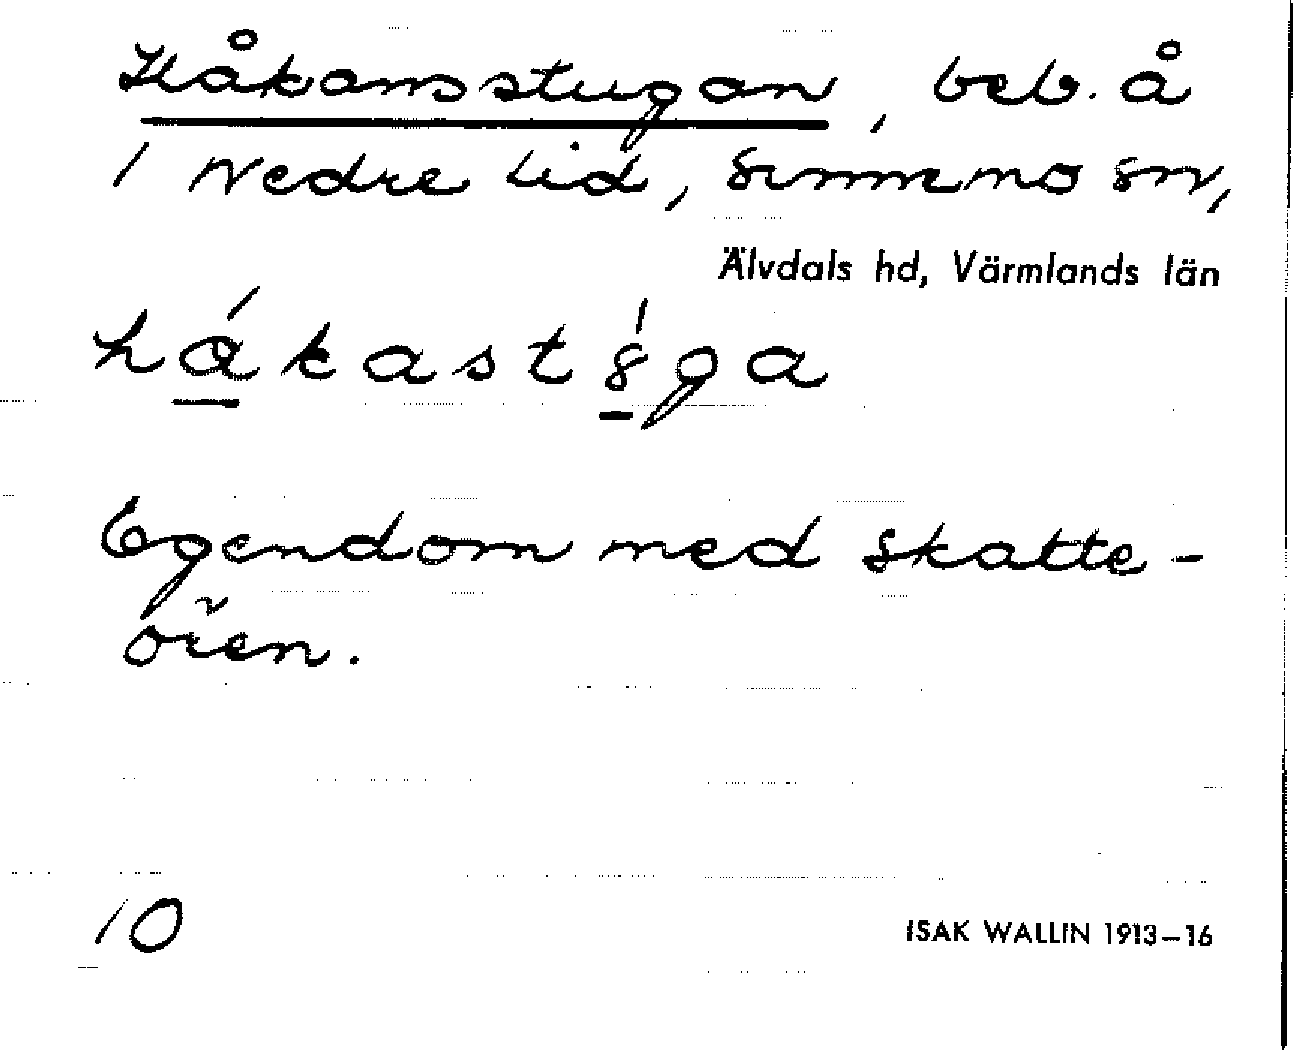 Håkansstugan, beb. å
1 Nedre Lid, Sunnemo sn,
Älvdals hd, Värmlands län
hákast8́ga
Egendom med skatte-
ören.
10
ISAK WALLIN 1913–16